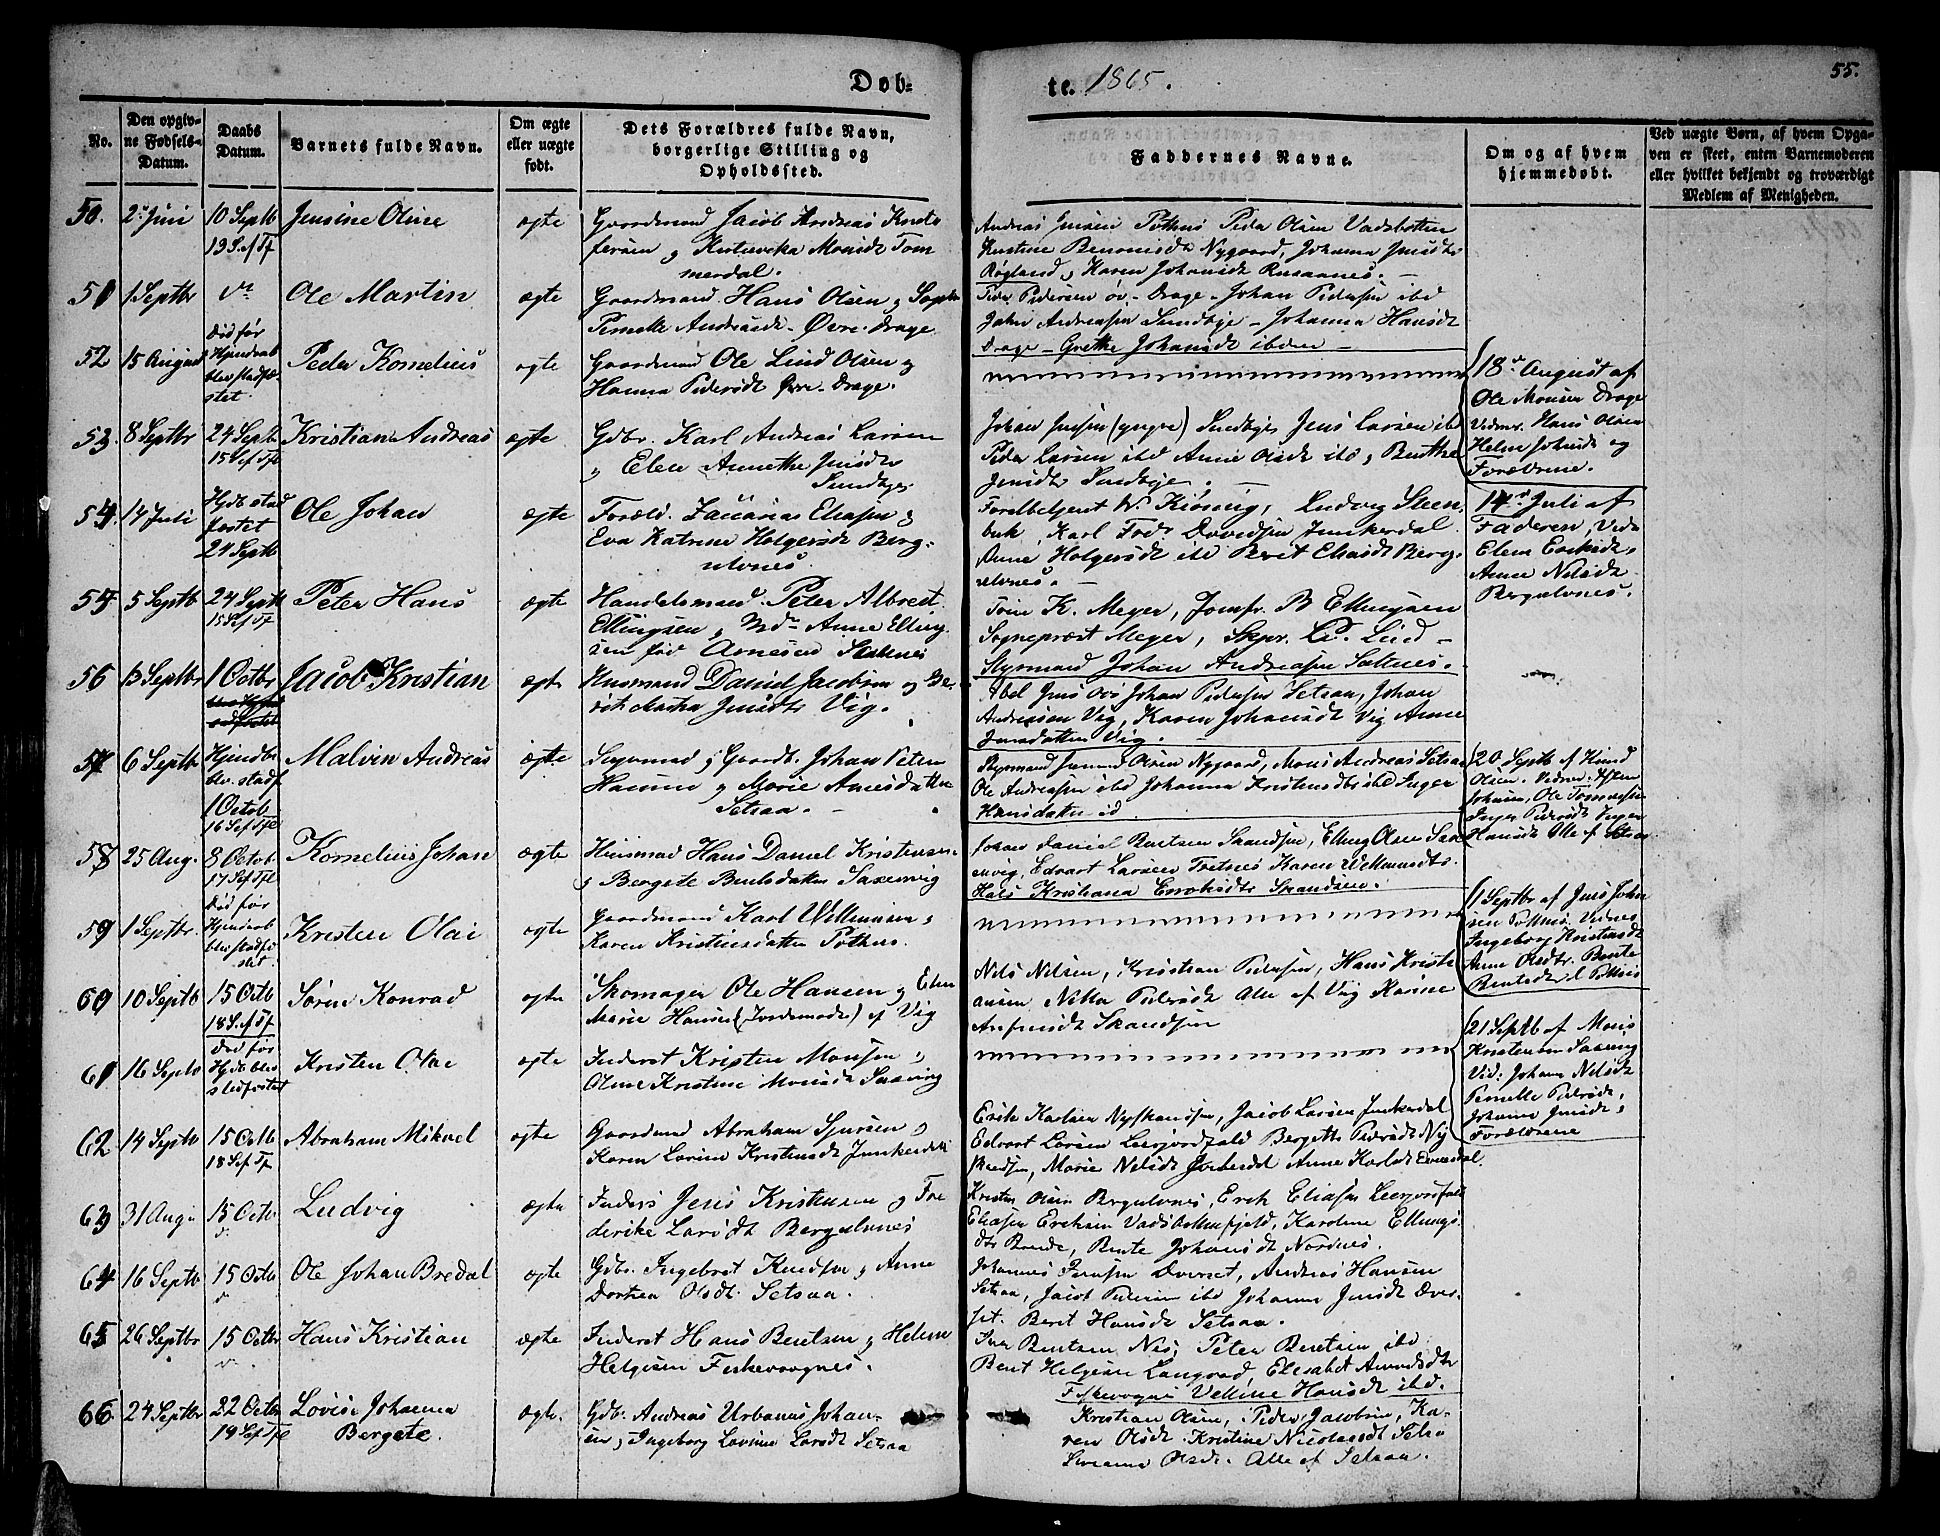 Døb-
te. 1865.
55.
No.
Den opgiv-
ne Fødsels-
Datum.
Daabs
Datum.
Barnets fulde Navn.
Om ægte
eller uægte
født.
Dets Forældres fulde Navn,
borgerlige Stilling og
Opholdssted.
Faddernes Navne.
Om og af hvem
hjemmedøbt.
Ved uægte Børn, af hvem Opga-
ven er skeet, enten Barnemoderen
eller hvilket bekjendt og troværdigt
Medlem af Menigheden.
50. 2 Juni 10 Septb Jensine Oline ægte Gaardmand Jacob Andreas Kristo
13 S. af Tf fersen og Monsdt Tom
merdal.
Andreas Jensen Pothus Peder Olsen Vadsbotten
Kristine Benonisdt Nygaard, Johanna Jensdtr
Røgland, Karen Johansdt Rusaanes.
51 1 Septbr Ole Martin ægte Gaardmand Hans Olsen og
Pernelle Andreasdt Øvre-Drage
Peder Pedersen øv. Drage - Johan Pedersen ibd
John Andreasen Sundbye - Johanna Hansdt
Drage - Grethe Johansdt ibdem
52 15 August død før Hjemdaab blev stadfæ-
stet Peder Kornelius ægte Gaardmand Ole Lind Olsen og
Hanna Pedersdt Øvre-Drage.
18de August af
Ole Monsen Drage
Vidner Hans Olsen
Helene Johnsdt og
Forældrene.
53. 8 Septbr 24 Septb Kristian Andreas ægte Gdbr. Karl Andreas Larsen
15 S ef Tfl og Elen Annethe Jensdtr
Sundbye
Johan Jensen (yngre) Sundbye Jens Larsen ibd
Peder Larsen ibd Anne Olsdt ibd, Benthe
Jensdtr Sundbye.
54. 14 Juli Hjdb stad
fæstet
24 Septb Ole Johan ægte Foræld. Zacarias Eliasen og
Eva Katrine Holgersdt Berg-
ulvnes
Ludvig Steen
buk, Karl Fredr Davidsen Junkerdal
Anne Holgersdt ibd Berit Eliasdt Berg-
ulvnes.
14de Juli af
Faderen, Vidn
Elen Eriksdt,
Anne Nilsdt
Bergulvnes.
55 5 Septb 24 Septb Peter Hans ægte Handelsmand Peter Albrect
15 S ef Tf Ellingsen og Md. Anne Elling-
sen fød Arnesen Saltnes
Frue K. Meyer, Jomfr. B Ellingsen
Sogneprest Meyer, Skpr. C. Lind -
Styrmand Johan Andreasen Saltnes.
56 13 Septbr 1 Octbr Jacob Kristian ægte Huusmand Daniel Jacobsen og Be-
rit Martha Jensdtr Vig.
Abel Johan Pedersen Setsaa, Johan
Andreasen Vig, Karen Johansdt Vig Anne
Jensdatter Vig.
57 6 Septb Hjemdb
blev stadf
1 Octob
16 S ef Tfl Malvin Andreas ægte Styrmand og Gaardb. Johan Peter
Hansen og Marie Arnesdatter
Setsaa.
Styrmand Olsen Nygaard, Mons Andreas Setsaa
Ole Andreasen ibd Johanna Kristensdtr ibd Inger
Hansdatter id
20 Septb af Knud
Olsen. Vidner
Johan, Ole Tomassen
Inger Pedersdt Inger
Hansdt Alle af Setsaa
58 25 Aug. 8 Octob Kornelius Johan ægte Huusmand Hans Daniel Kristensen
17 S ef Tfl og Bergete Bentsdatter Saxenvig
Johan Daniel Bentsen Skandsen, Elling Olsen Sax
envig, Edvart Larsen Fretnes Karen Wellumsdtr.
Kristiana Skandsen.
59 1 Septbr død før
Hjemdaab
blev stadfæ
stet. Kristen Olai ægte Gaardmand Karl Wellumsen og
Karen Kristensdatter Pothus.
1 Septbr af Jens Johan
sen Pothus Vidner
Ingeborg Kristensdt
Anne Olsdtr. Bente
Bentsdt Pothus
60 10 Septb 15 Octb Søren Konrad ægte Skomager Ole Hansen og Elen
18 S. af Tf Marie Hansen (Jordemoder) af Vig
Nils Nilsen, Kristian Pedersen, Hans Kristi
ansen Pedersdt Alle af Vig Hanne
Skandsen
61 16 Septb død før
Hjdb blev
stadfæstet Kristen Olai ægte Inderst Kristen Monsen og
Oline Kristine Monsdt Saxenvig
21 Septb af Mons
Kristensen Saxenvig
Vid: Johan Nilsdt
Pernelle Pedersdt,
Johanna Jensdt,
Forældrene
62 14 Septb 15 Octb Abraham Mikael ægte Gaardmand Abraham Sjursen og
18 S ef Tf Karen Lovise Kristensdt Junkerdal
Erik Karlsen Nystkandsen, Jacob Larsen Junkerdal
Edvart Larsen Leerjordfald Bergette Pedersdt Ny
skandsen, Marie Nilsdt Anne Karlsdt Evensdal.
63 31 Aug. 15 Octb Ludvig ægte Inders Jens Kristensen og Fre
derike Larsdt Bergulvnes
Kristen Olsen Bergulvnes, Erik Eliasen Leerjordfald
Eliasen Eriksen Vadsbottenfjeld, Karoline Ellings
dtr Bente Johansdt Nordnes.
64 16 Septb 15 Octb Ole Johan Bredal ægte Gdbr. Ingebret Knudsen og Anne
Dorthea Olsdt. Setsaa.
Johannes Jensen Dverset, Andreas Hansen
Setsaa, Jacob Pedersen ibd Johanna Jensdt Dver-
set. Berit Hansdt Setsaa.
65 26 Septbr 15 Octbr Hans Kristian ægte Inderst Hans Bentsen og Helene
Helgesen Fiskevaagnes.
Iver Bentsen Nes, Peter Bentsen ibd
Bent Helgesen Langvad, Elisabet Amundsdtr
Fiskevognes Velline Hansdt ibd.
66 24 Septbr 22 Octbr Lovise Johanna ægte. Gdb. Andreas Urbanus Johan-
19 S ef Tfl Bergete. sen, Ingeborg Lovise Larsdt Setsaa
Kristian Olsen, Peder Jacobsen, Ka-
ren Olsdt. Kristine Nicolaisdt Setsaa
Olsdt. Alle af Setsaa.